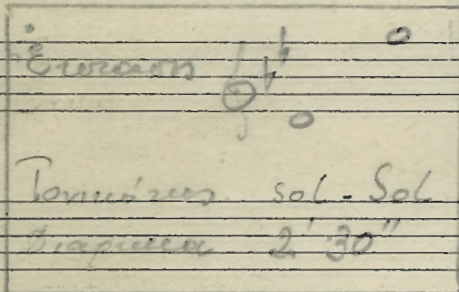 Ἔκτασις
Τονικότης sol - Sol
Διάρκεια 2' 30"